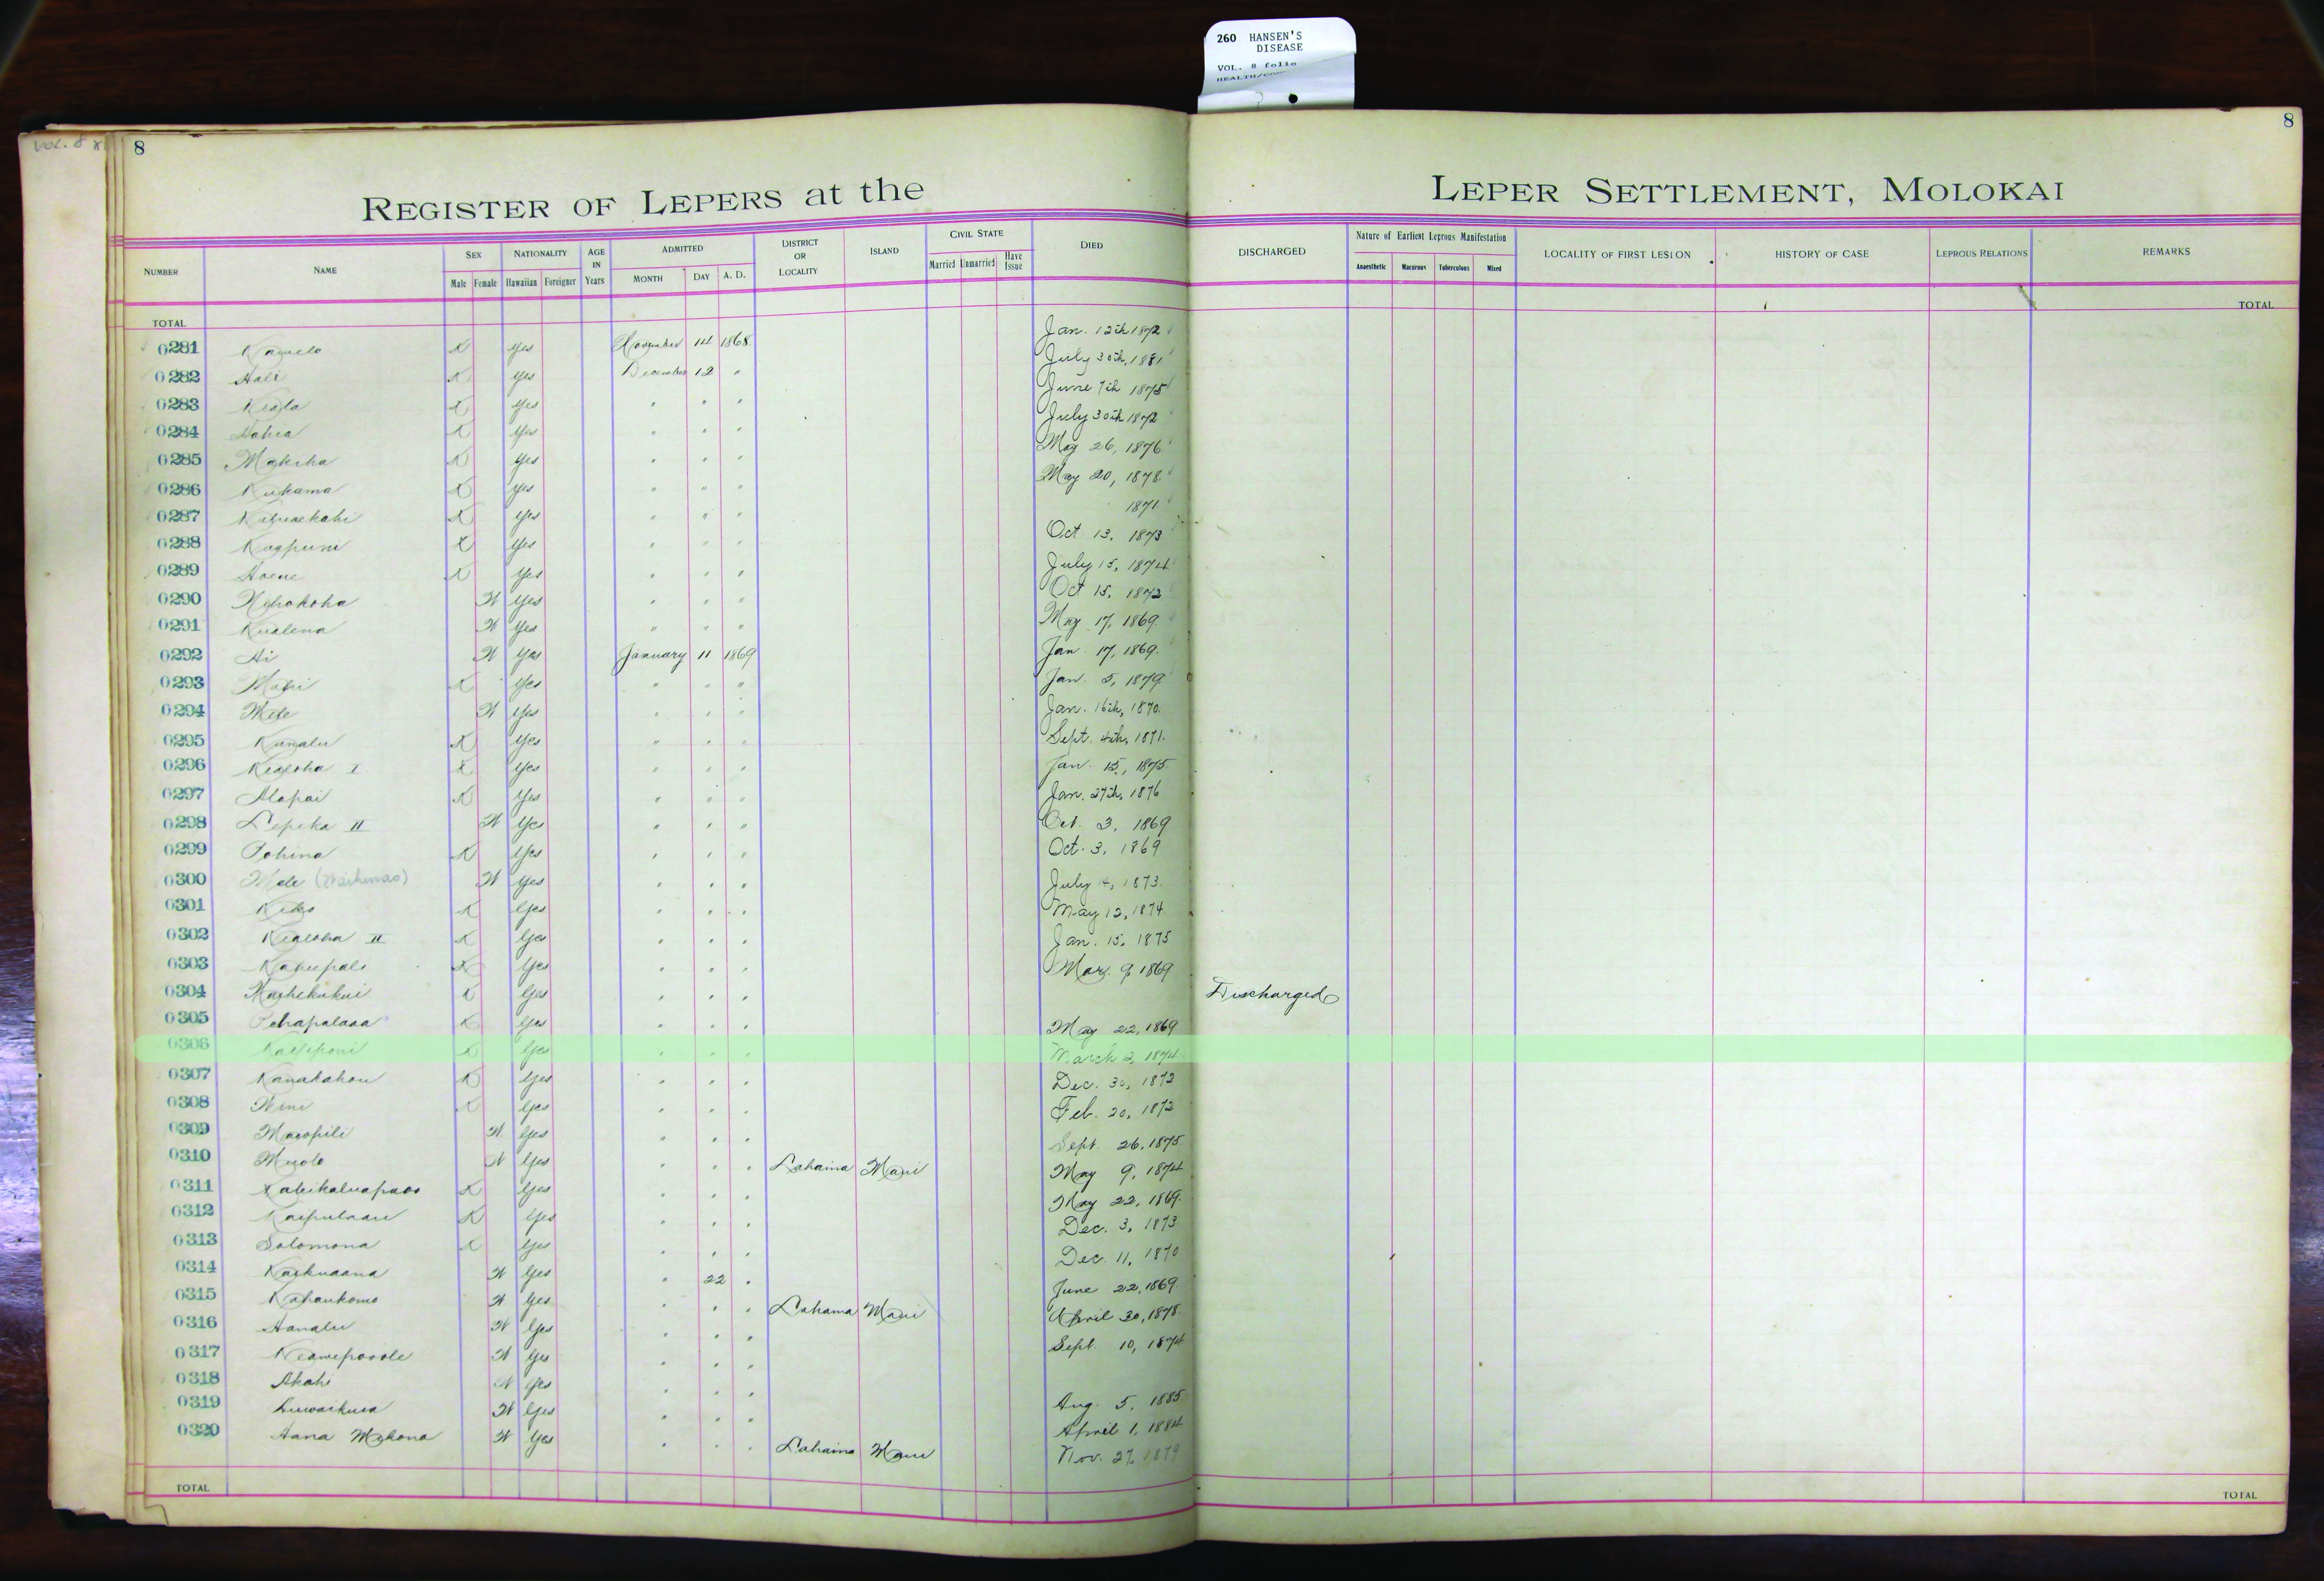 260 HANSEN'S
DISEASE
VOL. 8 folio
VOL. 8
8
8
REGISTER OF LEPERS at the LEPER SETTLEMENT, MOLOKAI
NUMBER NAME SEX Male Female NATIONALITY Hawaiian Foreigner AGE IN Years ADMITTED MONTH DAY A. D. DISTRICT OR LOCALITY ISLAND CIVIL STATE Married Unmarried Have Issue DIED DISCHARGED Nature of Earliest Leprous Manifestation Anaesthetic Macurous Tuberculous Mixed LOCALITY OF FIRST LESION HISTORY OF CASE LEPROUS RELATIONS REMARKS
TOTAL TOTAL
0281 K Yes November 14 1868 Jan. 12th 1872
0282 Hali K Yes December 12 " July 30th, 1881
0283 Keola K Yes " " " June 7th 1875
0284 K Yes " " " July 30th 1872
0285 Makeha K Yes " " " May 26, 1876
0286 Kukama K Yes " " " May 20, 1878
0287 K Yes " " " 1871
0288 K Yes " " " Oct. 13, 1873
0289 Hoene K Yes " " " July 15, 1874
0290 W Yes " " " Oct 15, 1872
0291 Kualena W Yes " " " May 17, 1869
0292 Ai W Yes January 11 1869 Jan. 17, 1869
0293 K Yes " " " Jan. 5, 1879
0294 Mele W Yes " " " Jan. 16th, 1870
0295 K Yes " " " Sept. 4th, 1871
0296 Kealoha I K Yes " " " Jan. 15, 1875
0297 Alapai K Yes " " " Jan. 27th, 1876
0298 Lepeka II W Yes " " " Oct. 3, 1869
0299 Pohina K Yes " " " Oct. 3, 1869
0300 Mele W Yes " " " July 4, 1873
0301 K Yes " " " May 12, 1874
0302 Kealoha II K Yes " " " Jan. 15, 1875
0303 K Yes " " " Mar. 9, 1869
0304 K Yes " " " Discharged
0305 Pehapalaoa K Yes " " " May 22, 1869
0306 K Yes " " " March 2, 1874
0307 Kanakahou K Yes " " " Dec. 30, 1872
0308 Nini K Yes " " " Feb. 20, 1872
0309 Maeopili W Yes " " " Sept. 26, 1875
0310 W Yes " " " Lahaina Maui May 9, 1874
0311 K Yes " " " May 22, 1869
0312 K Yes " " " Dec. 3, 1873
0313 Solomona K Yes " " " Dec. 11, 1870
0314 Kaikuaana W Yes " 22 " June 22, 1869
0315 W Yes " " " Lahaina Maui April 30, 1878
0316 Hanalu W Yes " " " Sept. 10, 1874
0317 W Yes " " "
0318 Akahi W Yes " " " Aug. 5, 1885
0319 W Yes " " " April 1, 1884
0320 Hana W Yes " " " Lahaina Maui Nov. 27, 1879
TOTAL TOTAL